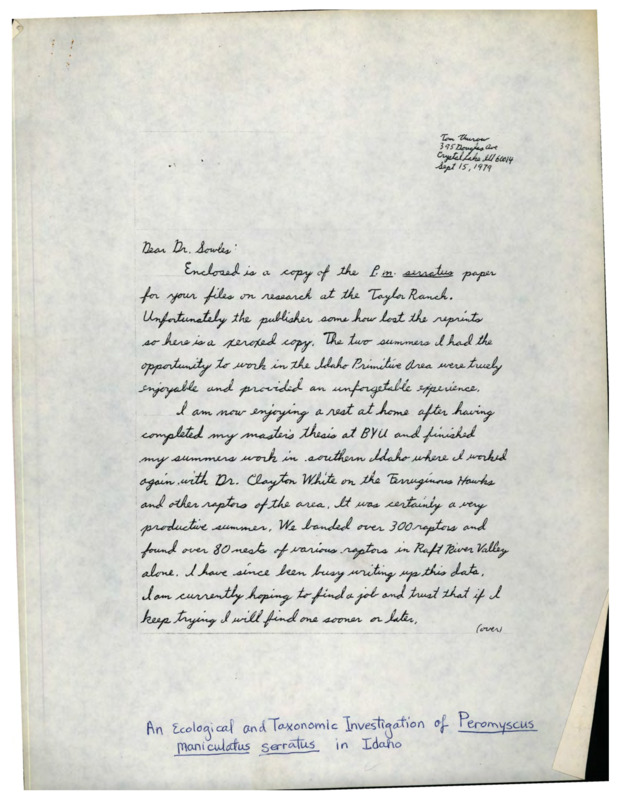 Tom Thurow
395 Douglas Ave
Crystal Lake, Ill 60014
Sept 15, 1979
Dear Dr. Sowles:
Enclosed is a copy of the P. m. serratus paper
for your files on research at the Taylor Ranch.
Unfortunately the publisher some how lost the reprints
so here is a xeroxed copy. The two summers I had the
opportunity to work in the Idaho Primitive Area were truely
enjoyable and provided an unforgetable experience.
I am now enjoying a rest at home after having
completed my master's thesis at BYU and finished
my summers work in southern Idaho where I worked
again with Dr. Clayton White on the Ferruginous Hawks
and other raptors of the area. It was certainly a very
productive summer. We banded over 300 raptors and
found over 80 nests of various raptors in Raft River Valley
alone. I have since been busy writing up this data.
I am currently hoping to find a job and trust that if I
keep trying I will find one sooner or later.
(over)
An Ecological and Taxonomic Investigation of Peromyscus
maniculatus serratus in Idaho